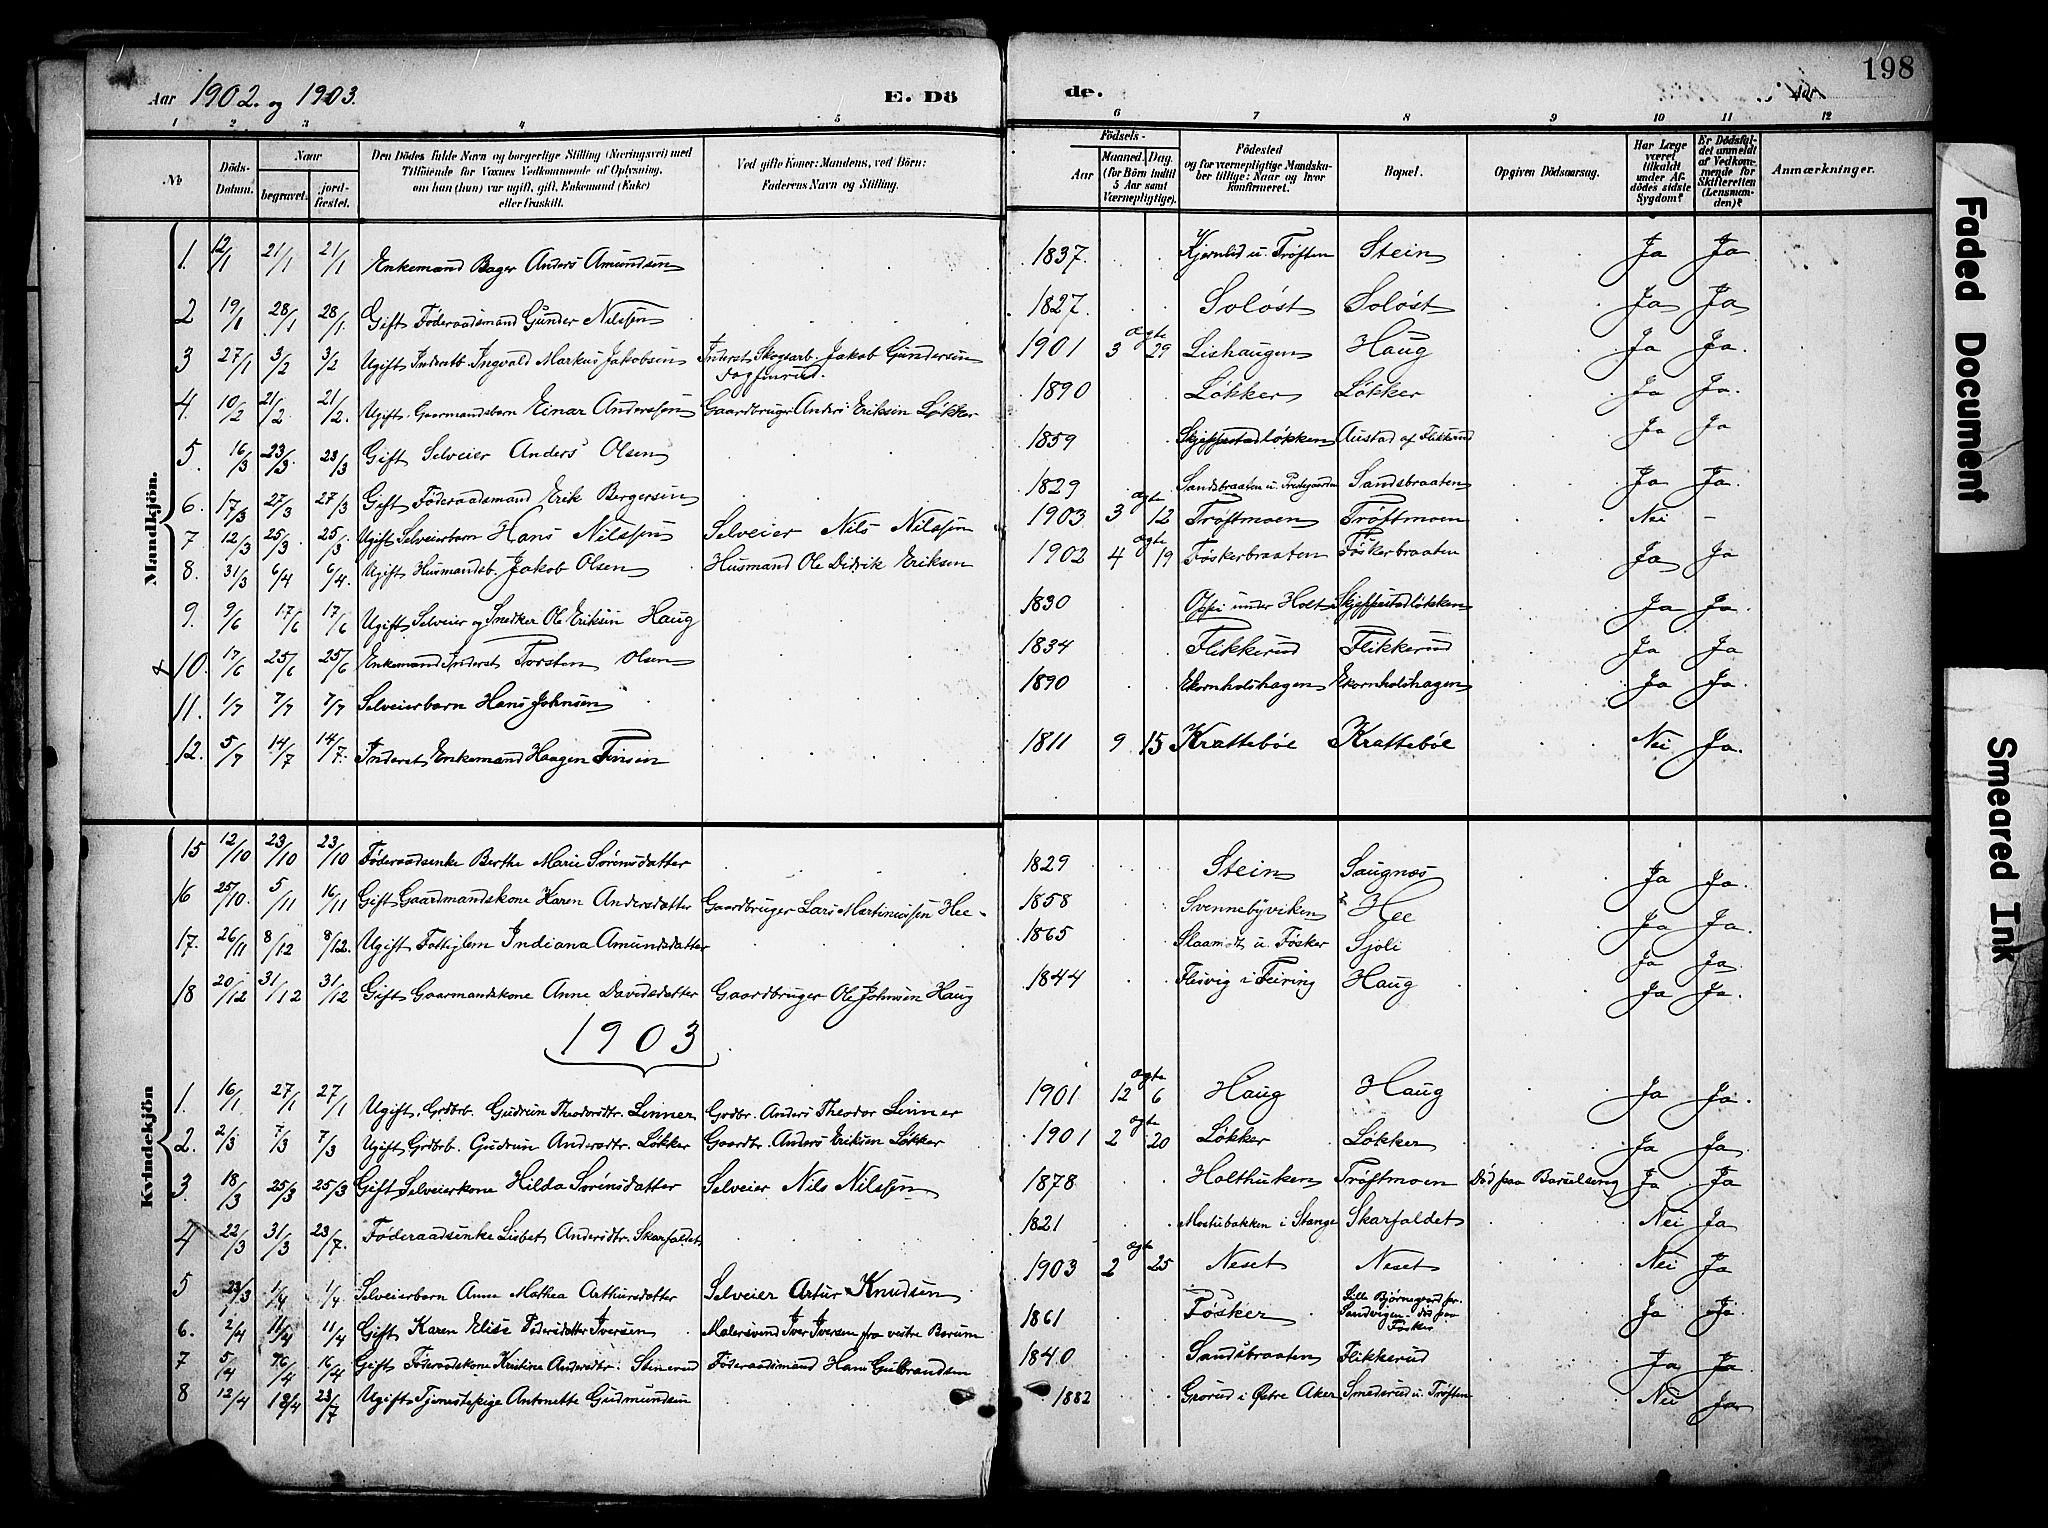 198
Aar 1902. og 1903.
E. Dö
de.
Aar
1 2 3 4 5 6 7 8 9 10 11 12
№
Döds-Datum.
Naar
begravet.
jord-fæstet.
Den Dödes fulde Navn og borgerlige Stilling (Næringsvei) med
Tilföiende for Voxnes Vedkommende af Oplysning,
om han (hun) var ugift, gift, Enkemand (Enke)
eller fraskilt.
Ved gifte Koner: Mandens, ved Börn:
Faderens Navn og Stilling.
Födsels-
Aar
Maaned. Dag.
(for Börn indtil
5 Aar samt
Værnepligtige).
Födested
og for værnepligtige Mandska-
ber tillige: Naar og hvor
konfirmeret.
Bopæl.
Opgiven Dödsaarsag.
Har Læge
været
tilkaldt
under Af-
dödes sidste
Sygdom?
Er Dödsfal-
det anmeldt
af Vedkom-
mende for
Skifteretten
(Lensman-
den)?
Anmærkninger.
Mandkjön.
1. 12/1 21/1 21/1 Enkemand Bager Anders Amundsen 1837. Kjernlid u. Trøften Stein Ja Ja
2 19/1 28/1 28/1 Gift Føderaadsmand Gunder Nilssen 1827. Soløst Soløst Ja Ja
3 27/1 3/2 3/2 Ugift Inderstb. Ingvald Markus Jakobsen Inderst Skogsarb. Jakob Gundersen 1901 3 ægte 29 Lishaugen Haug Ja Ja.
4. 10/2 21/2 21/2. Ugift. Gaarmandsbarn Einar Anderssen Gaardbruger Anders Eriksen Løkker 1890 Løkker Løkker Ja Ja.
5 16/3 23/3. 23/3 Gift Selveier Anders Olsen 1859 Skjeppestadløkken Austad af Flikkerud Ja Ja
6. 17/3 27/3 27/3 Gift Føderaadsmand Erik Bergersen 1829 Sandsbraaten u. Prestegaarden Sandsbraaten Ja Ja.
7 12/3 25/3. 25/3 Ugift Selveierbarn Hans Nilssen Selveier Nils Nilssen 1903 3 ægte 12 Trøftmoen Trøftmoen Nei –
8. 31/3 6/4 6/4. Ugift Husmandsb. Jakob Olsen Husmand Ole Didrik Eriksen 1902 4 ægte 19 Føskerbraaten Føskerbraaten Ja Ja
9. 9/6 17/6 17/6 Ugift Selveier og Snedker Ole Eriksen Haug 1830 Oppi under Holt Skjeppestadløkken Ja Ja.
10. 17/6 25/6 25/6 Enkemand Inderst Torsten Olsen 1834 Flikkerud Flikkerud Ja Ja
11. 1/7 7/7 7/7 Selveierbarn Hans Johnsen 1890 Ekornholshagen Ekornholshagen Ja Ja.
12. 5/7 14/7 14/7. Inderst Enkemand Haagen Finsen 1811 9 15 Krattebøl Krattebøl Nei Ja.
Kvindekjön
15 12/10 23/10 23/10 Føderaadsenke Berthe Marie Sørensdatter 1829 Stein Saugnæs Ja Ja.
16 25/10. 5/11 16/11 Gift Gaardmandskone Karen Andersdatter Gaardbruger Lars Martiniussen Hee- 1858 Svennebyviken Hee Ja Ja.
17. 26/11 8/12 8/12. Ugift Fattiglem Indiana Amundsdatter 1865 u. Føsker Sjøli Ja Ja.
18 20/12 31/12 31/12 Gift Gaarmandskone Anne Davidsdatter Gaardbruger Ole Johnsen Haug 1844 Flesvig i Feiring Haug Ja Ja.
1903
1. 16/1 27/1 27/1 Ugift. Grdbrb. Gudrun Theodorsdtr. Linner Grdbr. Anders Theodor Linner 1901 12 ægte 6 Haug Haug Ja Ja.
2. 2/3 7/3 7/3 Ugift Grdbrb. Gudrun Andersdtr. Løkker Gaardbr. Anders Eriksen Løkker 1901 2 ægte 20 Løkker Løkker Ja Ja.
3. 18/3 25/3 25/3 Gift Selveierkone Hilda Sørensdatter Selveier Nils Nilssen 1878 Holthuken Trøftmoen Død paa Barselseng Ja Ja
4 22/3 31/3 23/7. Føderaadsenke Lisbet Andersdtr. Skarfaldet 1821 Mostubakken i Stange Skarfaldet Nei Ja
5 23/3 1/4 1/4 Selveierbarn Anne Mathea Arthursdatter Selveier Artur Knudsen 1903 2 ægte 25 Neset Neset Nei Ja
6. 2/4 11/4 11/4 Gift Karen Elise Pedersdatter Iversen Malersvend Iver Iversen fra vestre Bærum 1861 Føsker Lille Bjørnegaard pr. Sandvigen - død paa Føsker Ja Ja
7 5/4 16/4 16/4 Gift Føderaadskone Kristine Andersdtr. Stenerud Føderaadsmand Hans Gulbrandsen 1840 Sandsbraaten Flikkerud Ja Ja
8 12/4 18/4 23/7 Ugift Tjenestepige Antonette Gudmundsen 1882 Grorud i Østre Aker Smedsrud u. Trøften Nei Ja
Faded Document
Smeared Ink